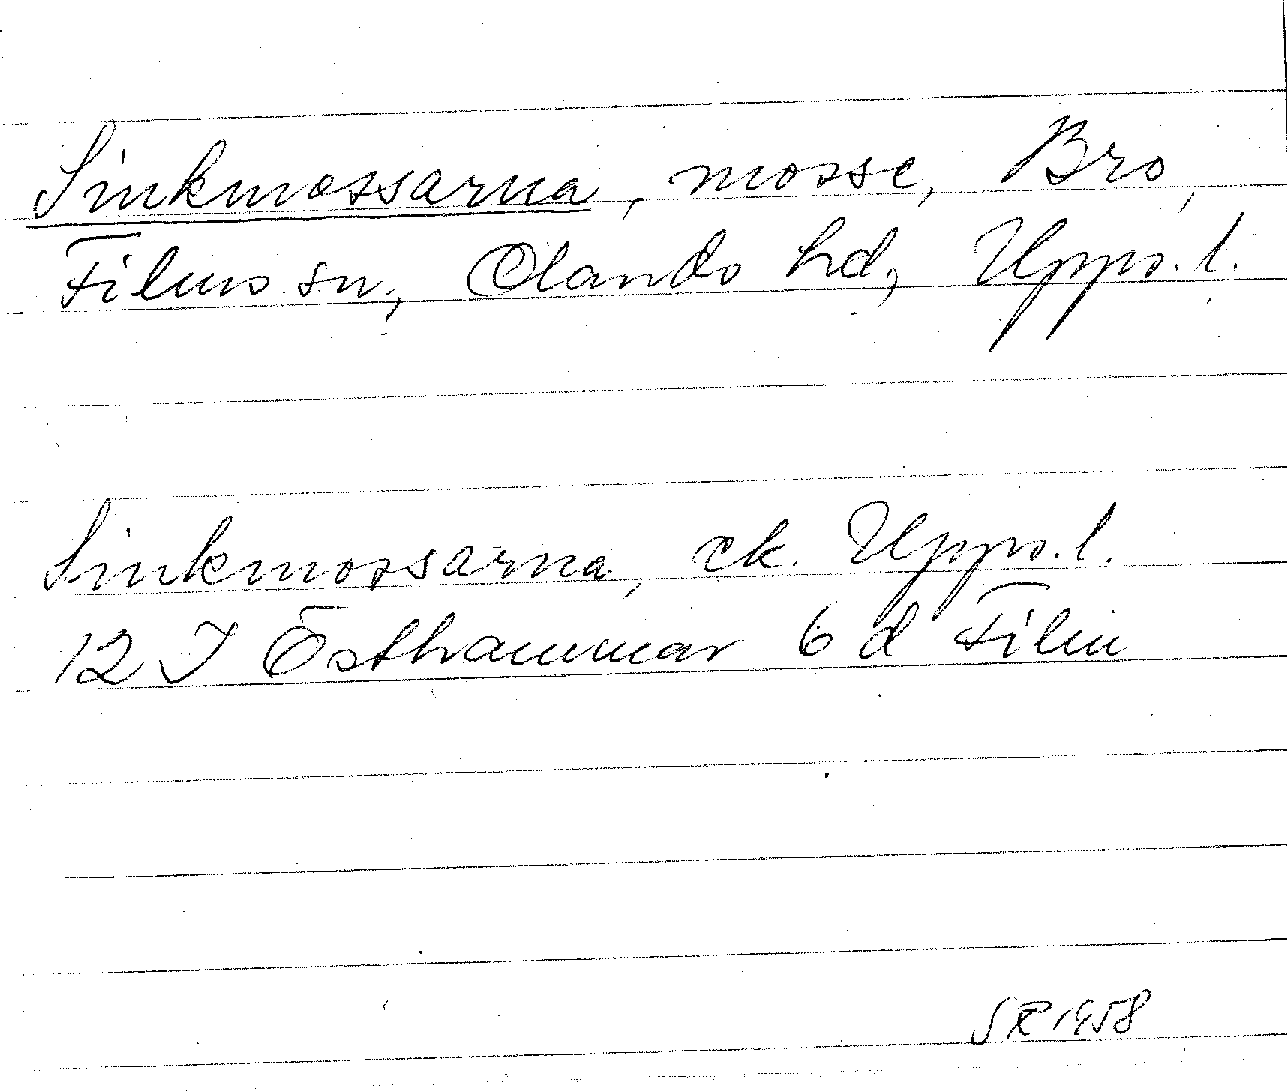 Sinkmossarna, mosse, Bro,
Films sn, Olands hd, Upps. l.
Sinkmossarna, ek. Upps. l.
12 I Östhammar 6 d Film
SR 1958